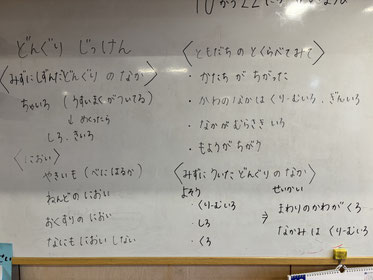 どんぐり じっけん
〈みずにしずんだどんぐり の なか〉
ちゃいろ (うすいまくがついてる)
↓ めくったら
しろ、きいろ
〈におい〉
やきいも (べにはるか)
ねんどの におい
おくすりの におい
なにも におい しない
〈ともだちの とくらべてみて〉
・かたち が ちがった
・かわの なか は くりーむいろ、ぎんいろ
・なか が むらさき いろ
・もようが ちがう
〈みずに ういた どんぐり の なか〉
よそう
・くりーむいろ
しろ
・くろ
せいかい
⇒ まわりの かわ が くろ
なかみ は くりーむいろ